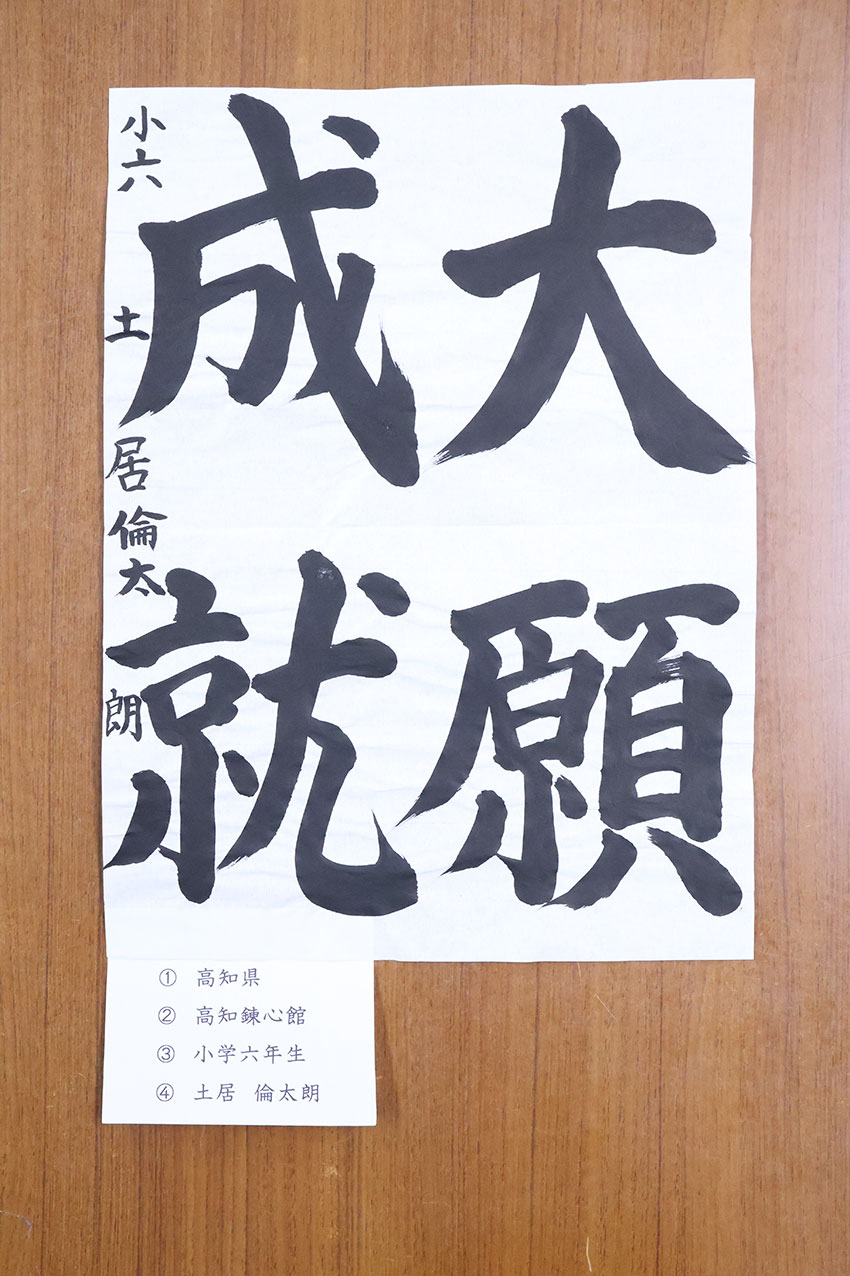 大願
成就
小六 土居倫太朗
① 高知県
② 高知錬心館
③ 小学六年生
④ 土居 倫太朗